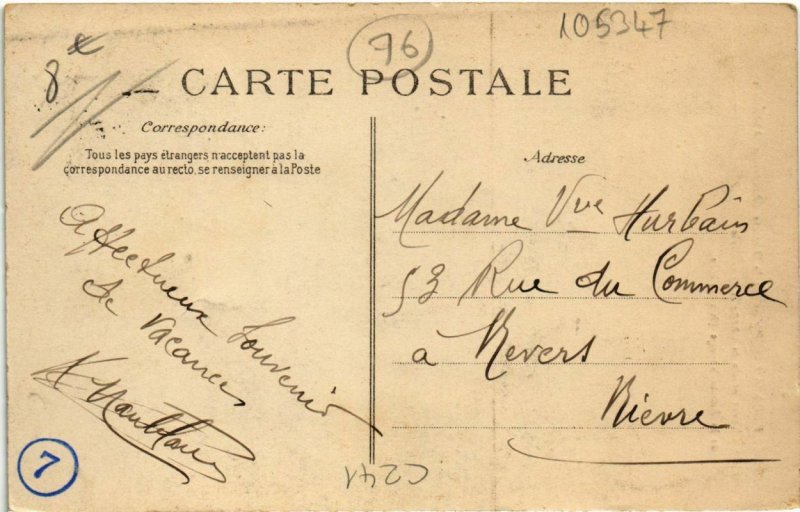 105347
76
8x
CARTE POSTALE
Correspondance:
Tous les pays étrangers n'acceptent pas la
correspondance au recto, se renseigner à la Poste
Affectueux Souvenir
de Vacances
Adresse
Madame Vve Hurbain
53 Rue du Commerce
à Nevers
Nièvre
7
C241